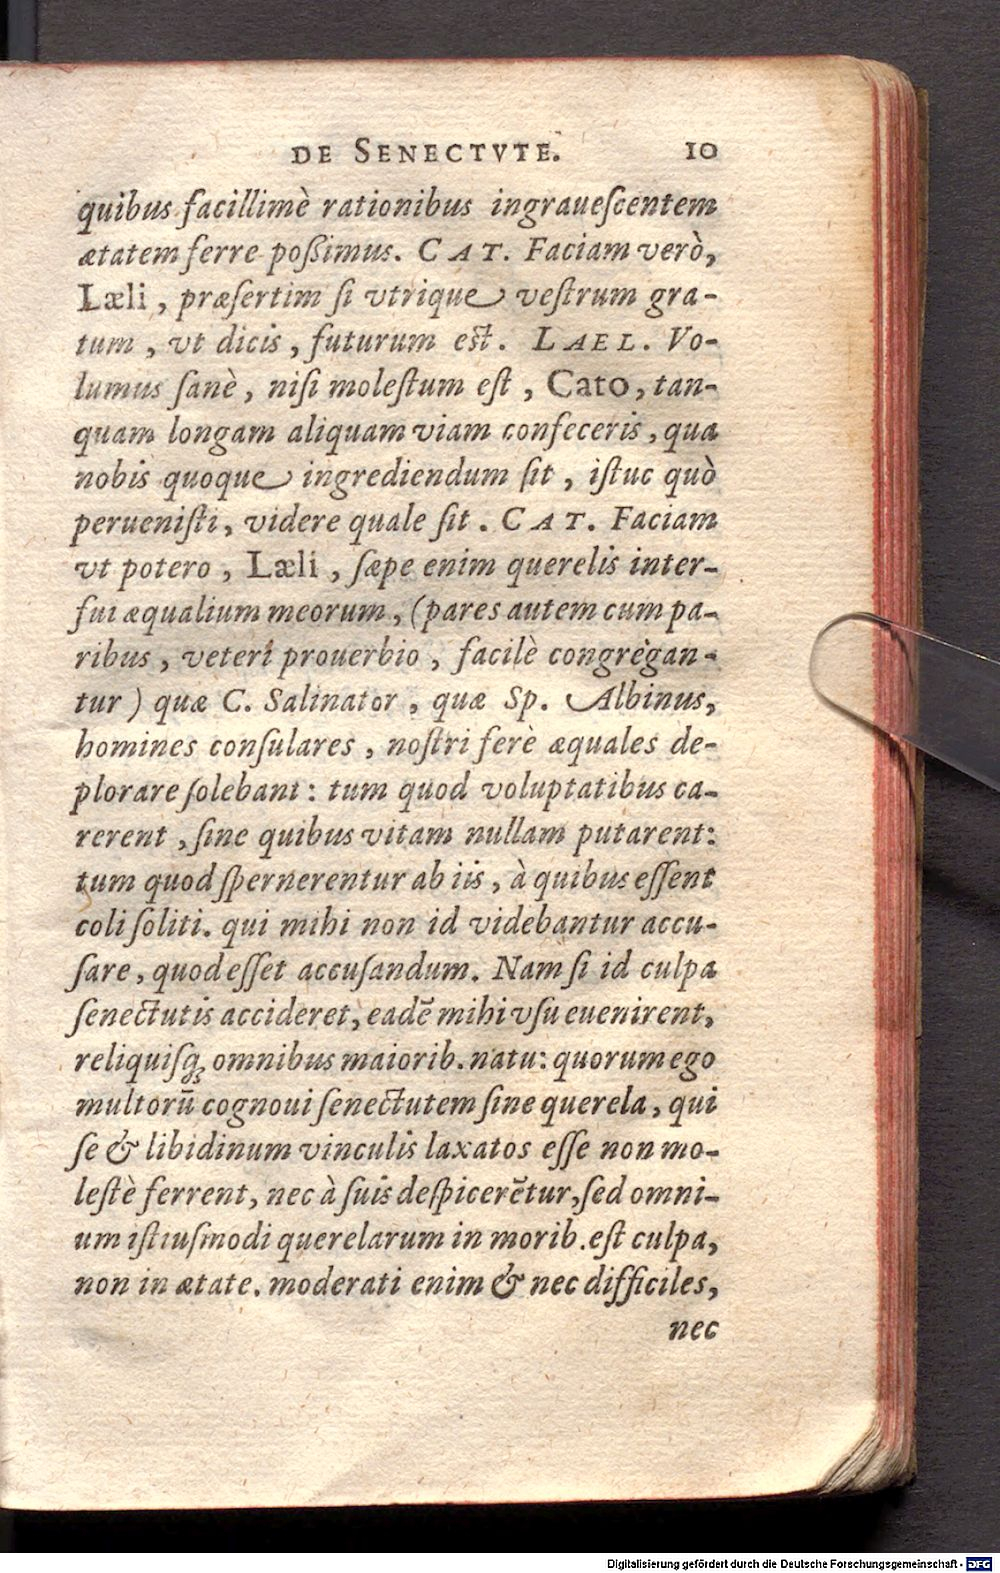 DE SENECTVTE. 10
quibus facillimè rationibus ingrauescentem
ætatem ferre possimus. CAT. Faciam verò,
Læli, præsertim si vtrique vestrum gra-
tum, vt dicis, futurum est. LAEL. Vo-
lumus sanè, nisi molestum est, Cato, tan-
quam longam aliquam viam confeceris, qua
nobis quoque ingrediendum sit, istuc quò
peruenisti, videre quale sit. CAT. Faciam
vt potero, Læli, sæpe enim querelis inter-
fui æqualium meorum, (pares autem cum pa-
ribus, veteri prouerbio, facilè congregan-
tur) quæ C. Salinator, quæ Sp. Albinus,
homines consulares, nostri ferè æquales de-
plorare solebant: tum quod voluptatibus ca-
rerent, sine quibus vitam nullam putarent:
tum quod spernerentur ab iis, à quibus essent
coli soliti. qui mihi non id videbantur accu-
sare, quod esset accusandum. Nam si id culpa
senectutis accideret, eadē mihi vsu euenirent,
reliquisq; omnibus maiorib. natu: quorum ego
multorū cognoui senectutem sine querela, qui
se & libidinum vinculis laxatos esse non mo-
lestè ferrent, nec à suis despicerētur, sed omni-
um istiusmodi querelarum in morib. est culpa,
non in ætate. moderati enim & nec difficiles,
nec
Digitalisierung gefördert durch die Deutsche Forschungsgemeinschaft - DFG